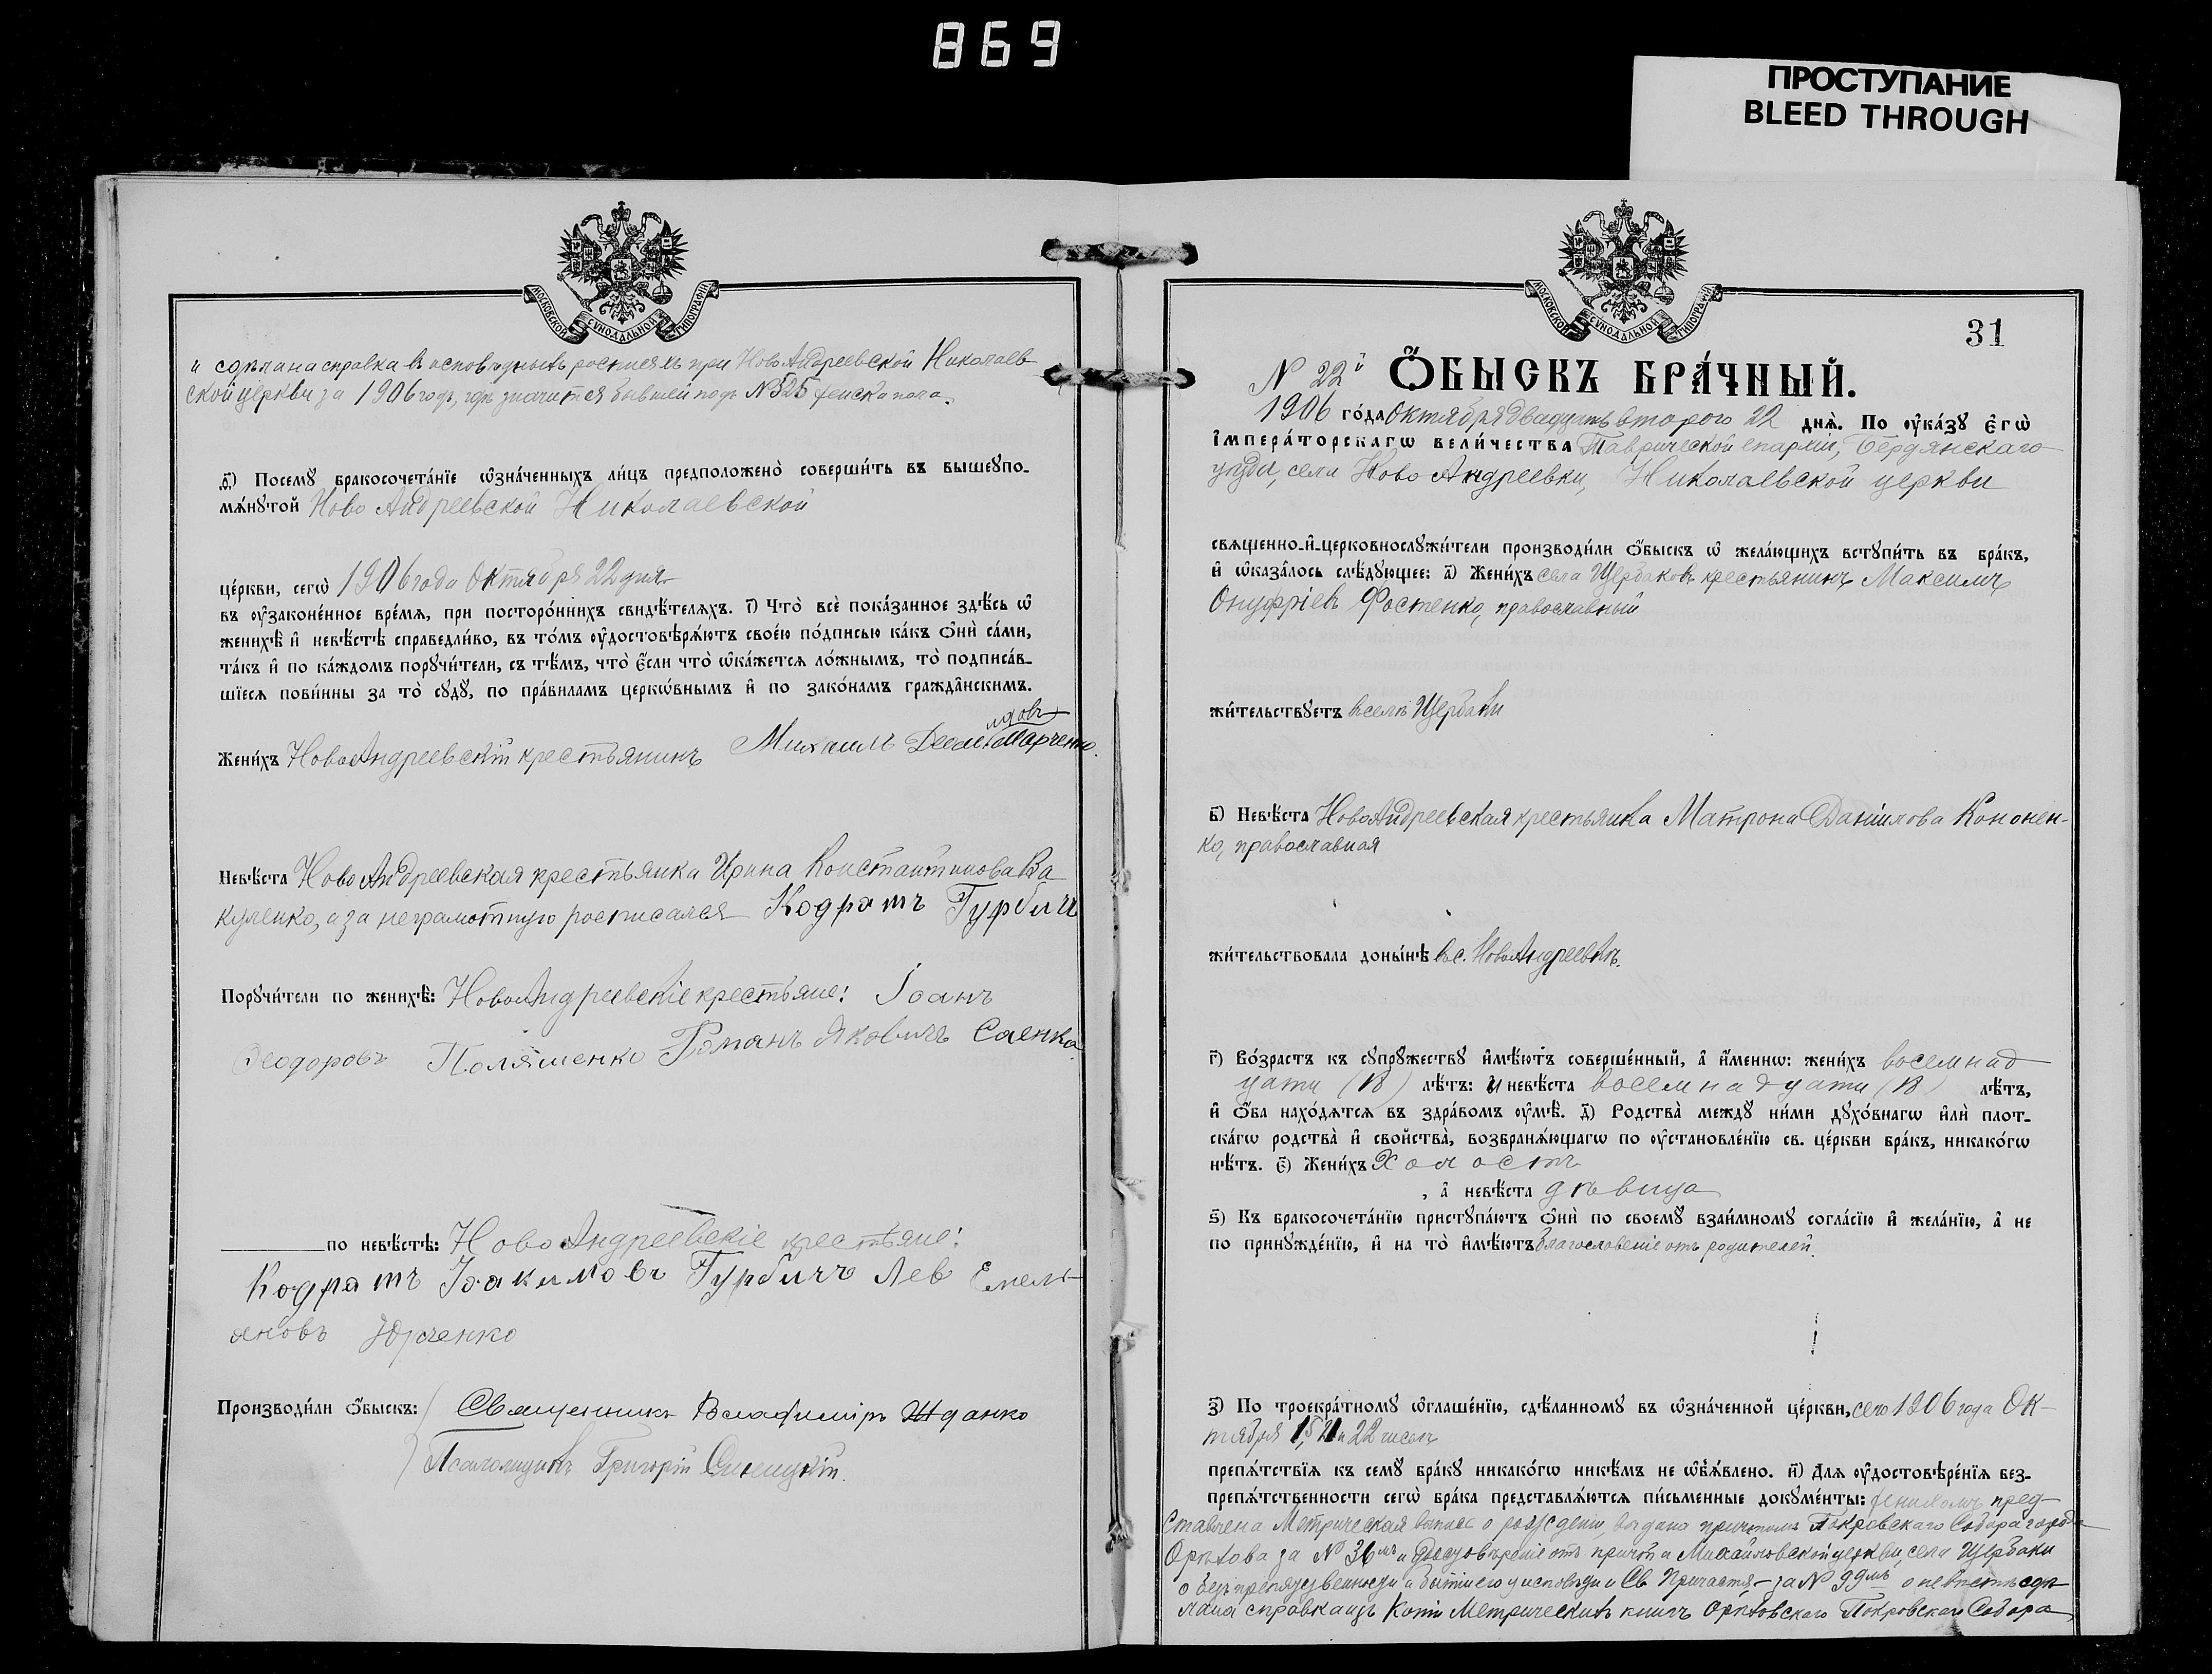 869
ПРОСТУПАНИЕ
BLEED THROUGH
МОСКОВСКОЙ СѴНОДАЛЬНОЙ ТИПОГРАФІИ
и сдѣлана справка въ исповѣдныхъ росписяхъ при Ново Андреевской Николаев-
ской церкви за 1906 годъ, гдѣ значится бывшей подъ № 525 женска пола.
д҃) Посемꙋ̀ бракосочета́нїе ѡ҆зна́ченныхъ ли́цъ предположено̀ соверши́ть въ вышеꙋпо-
мѧ́нꙋтой Ново Андреевской Николаевской
це́ркви, сегѡ̀ 1906 года Октября 22 дня
въ ᲂу҆законе́нное вре́мѧ, при посторо́ннихъ свидѣ́телѧхъ. і҃) Что̀ всѐ пока́занное здѣ́сь ѡ҆
женихѣ̀ и҆ невѣ́стѣ справедли́во, въ то́мъ ᲂу҆достовѣрѧ́ютъ свое́ю по́дписью ка́къ ѻ҆нѝ са́ми,
та́къ и҆ по ка́ждомъ порꙋчи́тели, съ тѣ́мъ, что̀ є҆́сли что̀ ѡ҆ка́жетсѧ ло́жнымъ, то̀ подписа́в-
шїесѧ пови́нны за то̀ сꙋдꙋ̀, по пра́виламъ церкѡ́внымъ и҆ по зако́намъ гражда̂нскимъ.
Жени́хъ НовоАндреевскій крестьянинъ Михаилъ Марченко.
Невѣ́ста Ново Андреевская крестьянка Ирина Константинова Ва
куленко, а за неграмотную росписался Кодратъ Гурбичъ
Порꙋчи́тели по женихѣ̀: НовоАндреевскіе крестьяне: Іоанъ
Ѳеодоровъ Поляшенко Романъ Яковичъ Саенко.
по невѣ́стѣ: Ново Андреевскіе крестьяне:
Кодратъ Іоакимовъ Гурбичъ Лев Емель-
яновъ Юрченко
Производи́ли ѻ҆́быскъ: Священникъ Владиміръ Жданко
Псаломщикъ Григорій Синицкій.
МОСКОВСКОЙ СѴНОДАЛЬНОЙ ТИПОГРАФІИ
31
N 22й Ѻ҆́БЫСКЪ БРА́ЧНЫЙ.
1906 го́да Октября двадцать второго 22 днѧ̀. По ᲂу҆ка́зꙋ Є҆гѡ̀
І҆мпера́торскагѡ вели́чества Таврической епархіи, Бердянскаго
уѣзда, села Ново Андреевки, Николаевской церкви
свѧщенно-и҆-церковнослꙋжи́тели производи́ли ѻ҆́быскъ ѡ҆ жела́ющихъ встꙋпи́ть въ бра́къ,
и҆ ѡ҆каза́лось слѣ́дꙋющее: а҃) Жени́хъ села Щербаковъ крестьянинъ Максимъ
Онуфріевъ Фостенко, православный
жи́тельствꙋетъ въ селѣ Щербаки
в҃) Невѣ́ста НовоАндреевская крестьянка Матрона Даніилова Кононен-
ко, православная
жи́тельствовала доны́нѣ въ с. НовоАндреевкѣ.
г҃) Во́зрастъ къ сꙋпрꙋ́жествꙋ и҆мѣ́ютъ соверше́нный, а҆ и҆́меннѡ: жени́хъ восемнад
цати (18) лѣ́тъ: и невѣ́ста восемнадцати (18) лѣ́тъ,
и҆ ѻ҆́ба нахо́дѧтсѧ въ здра́вомъ ᲂу҆мѣ̀. д҃) Родства̀ междꙋ̀ ни́ми дꙋхо́внагѡ и҆лѝ плот-
ска́гѡ родства̀ и҆ свойства̀, возбранѧ́ющагѡ по ᲂу҆становле́нїю св. це́ркви бра́къ, никако́гѡ
нѣ́тъ. є҃) Жени́хъ Холостъ
, а҆ невѣ́ста дѣвица
ѕ҃) Къ бракосочета́нїю пристꙋпа́ютъ ѻ҆нѝ по своемꙋ̀ взаи́мномꙋ согла́сїю и҆ жела́нїю, а҆ не
по принꙋжде́нїю, и҆ на то̀ и҆мѣ́ютъ благословеніе отъ родителей.
з҃) По троекра́тномꙋ ѡ҆глаше́нїю, сдѣ́ланномꙋ въ ѡ҆зна́ченной це́ркви, сего 1906 года Ок-
тября 15, 21 и 22 чиселъ
препѧ́тствїѧ къ семꙋ̀ бра́кꙋ никако́гѡ никѣ́мъ не ѡ҆бъѧ́влено. и҃) Длѧ ᲂу҆достовѣре́нїѧ без-
препѧ́тственности сегѡ̀ бра́ка представлѧ́ютсѧ пи́сьменные докꙋме́нты: женихомъ пред-
ставлена Метрическая выпись о рожденіи, выдана причтомъ Покровскаго Собора города
Орѣхова за № 36мъ и удостовѣреніе отъ причта Михайловской церкви, села Щербаки
о безпрепятственности и бытіи его у исповѣди и Св. Причастія за № 99мъ о невѣстѣ сдѣ-
лана справка изъ Копіи Метрическихъ книгъ Орѣховскаго Покровскаго Собора